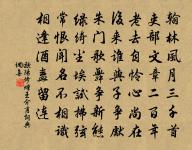 翰林風月三千首
吏部文章二百年
老去自憐心尚在
後來誰與子爭先
朱門歌舞爭新態
綠綺塵埃試拂弦
常恨聞名不相識
相逢酒留連
歐陽修贈王介甫詞典
網集